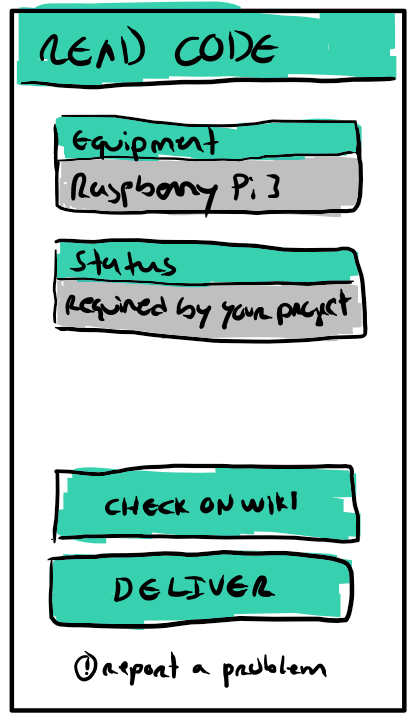 READ CODE
Equipment
Raspberry Pi 3
Status
Required by your project
CHECK ON WIKI
DELIVER
! report a problem